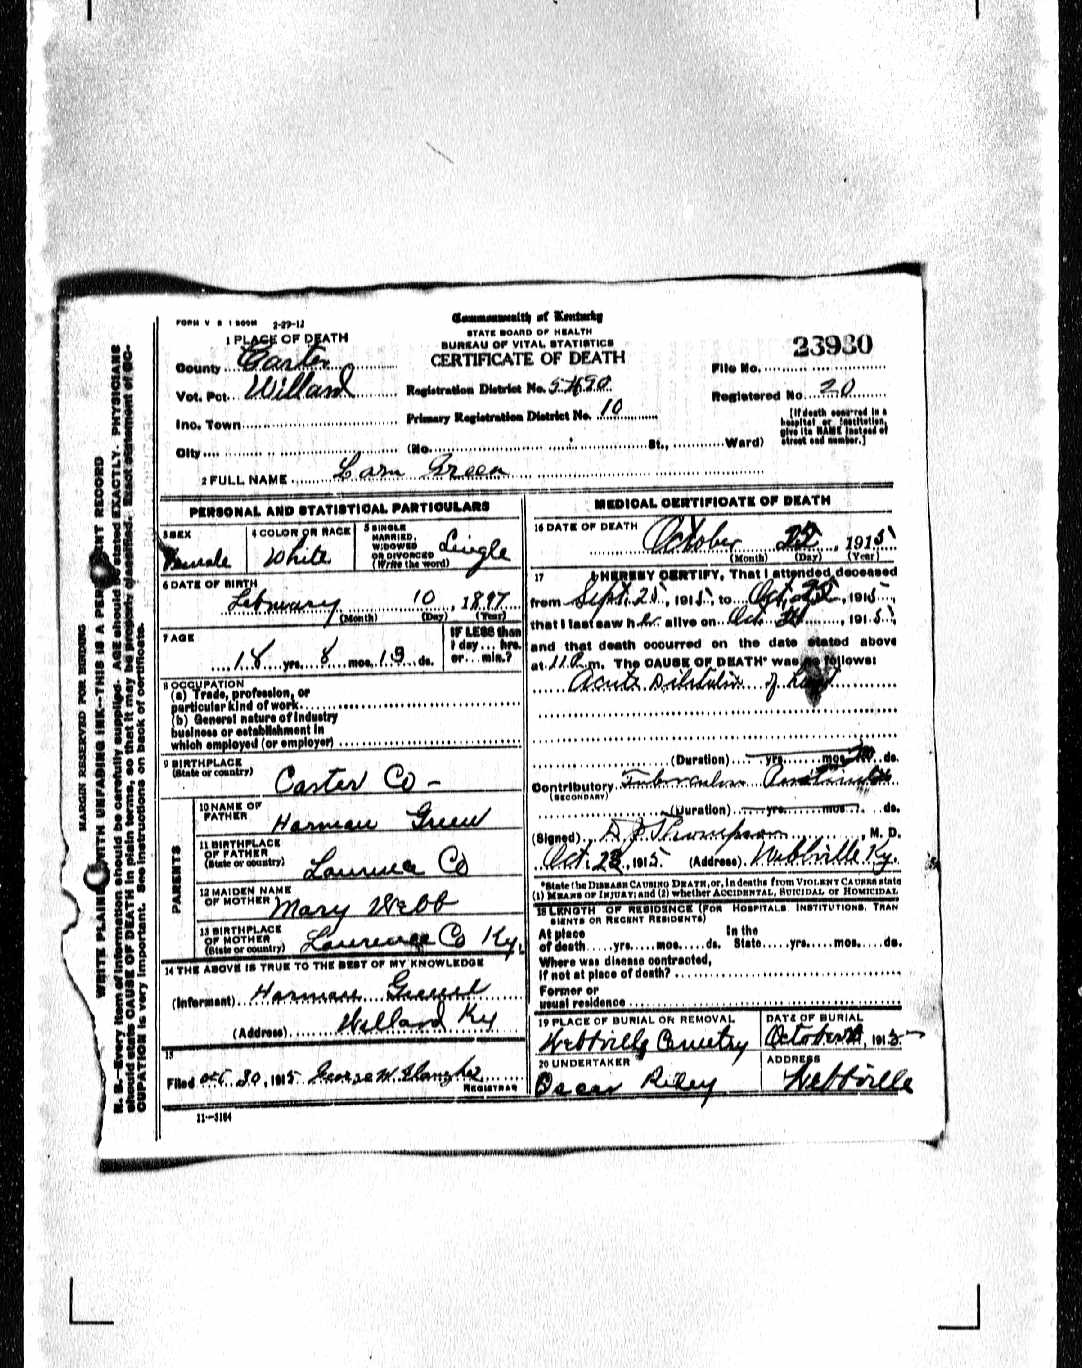 FORM V S 1 500M 2-29-12
Commonwealth of Kentucky
STATE BOARD OF HEALTH
BUREAU OF VITAL STATISTICS
CERTIFICATE OF DEATH
23980
1 PLACE OF DEATH
County Carter
Vot. Pct. Willard
Inc. Town
City
Registration District No. 5490
Primary Registration District No. 10
(No. St., Ward)
File No.
Registered No. 20
[If death occurred in a
hospital or institution,
give its NAME instead of
street and number.]
2 FULL NAME Green
PERSONAL AND STATISTICAL PARTICULARS
3 SEX
Female
4 COLOR OR RACE
White
5 SINGLE
MARRIED,
WIDOWED
OR DIVORCED
(Write the word)
Single
6 DATE OF BIRTH
February 10, 1897
(Month) (Day) (Year)
7 AGE
18 yrs. 8 mos. ds.
IF LESS than
1 day... hrs.
or... min.?
8 OCCUPATION
(a) Trade, profession, or
particular kind of work
(b) General nature of industry
business or establishment in
which employed (or employer)
9 BIRTHPLACE
(State or country)
Carter Co -
PARENTS
10 NAME OF
FATHER
Harman Green
11 BIRTHPLACE
OF FATHER
(State or country)
Co
12 MAIDEN NAME
OF MOTHER
Mary Webb
13 BIRTHPLACE
OF MOTHER
(State or country)
Lawrence Co Ky.
14 THE ABOVE IS TRUE TO THE BEST OF MY KNOWLEDGE
(Informant) Harman
(Address) Willard Ky
15
Filed Oct. 30, 1915 George W.
REGISTRAR
11-3184
MEDICAL CERTIFICATE OF DEATH
16 DATE OF DEATH
October, 1915
(Month) (Day) (Year)
17 I HEREBY CERTIFY, That I attended deceased
from Sept. 25, 1915, to Oct., 1915,
that I last saw her alive on Oct., 1915,
and that death occurred on the date stated above
at 11 P m. The CAUSE OF DEATH* was as follows:
Acute of
(Duration) yrs. mos. ds.
Contributory
(SECONDARY)
(Duration) yrs. mos. ds.
(Signed) Thompson, M. D.
Oct., 1915 (Address) Webbville Ky.
*State the DISEASE CAUSING DEATH, or, in deaths from VIOLENT CAUSES state
(1) MEANS OF INJURY; and (2) whether ACCIDENTAL, SUICIDAL OR HOMICIDAL
18 LENGTH OF RESIDENCE (FOR HOSPITALS, INSTITUTIONS, TRAN
SIENTS OR RECENT RESIDENTS)
At place In the
of death yrs. mos. ds. State yrs. mos. ds.
Where was disease contracted,
if not at place of death?
Former or
usual residence
19 PLACE OF BURIAL OR REMOVAL
Webbville Cemetry
DATE OF BURIAL
October, 1915
20 UNDERTAKER
Oscar Riley
ADDRESS
Webbville
MARGIN RESERVED FOR BINDING
WRITE PLAINLY WITH UNFADING INK--THIS IS A PERMANENT RECORD
N. B.-Every item of information should be carefully supplied. AGE should be stated EXACTLY. PHYSICIANS
should state CAUSE OF DEATH in plain terms, so that it may be properly classified. Exact statement of OC-
CUPATION is very important. See instructions on back of certificate.